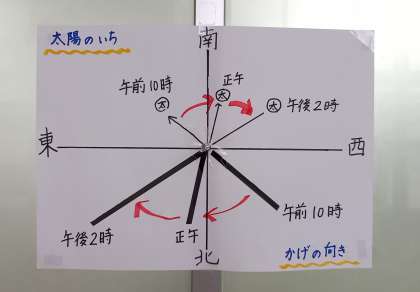 南
太陽のいち
午前10時
正午
太
太
太
午後2時
東
西
午後2時
正午
午前10時
北
かげの向き